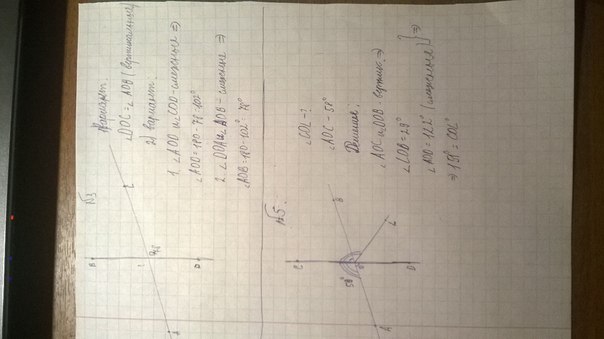 №3
1 вариант.
∠DOC = ∠AOB (вертикальные)
2) вариант.
1. ∠AOD и ∠COD - смежные ⇒
∠AOD = 180 - 78 = 102°
2. ∠DOA и ∠AOB - смежные ⇒
∠AOB = 180 - 102° = 78°
B
C
78°
D
A
№5.
∠COL - ?
∠AOC - 58°
Решение.
∠AOC и ∠DOB - вертик. ⇒
∠LOB = 29°
∠AOD = 122° (смежные) ⇒
⇒ 151° = COL
C
B
58°
L
D
A